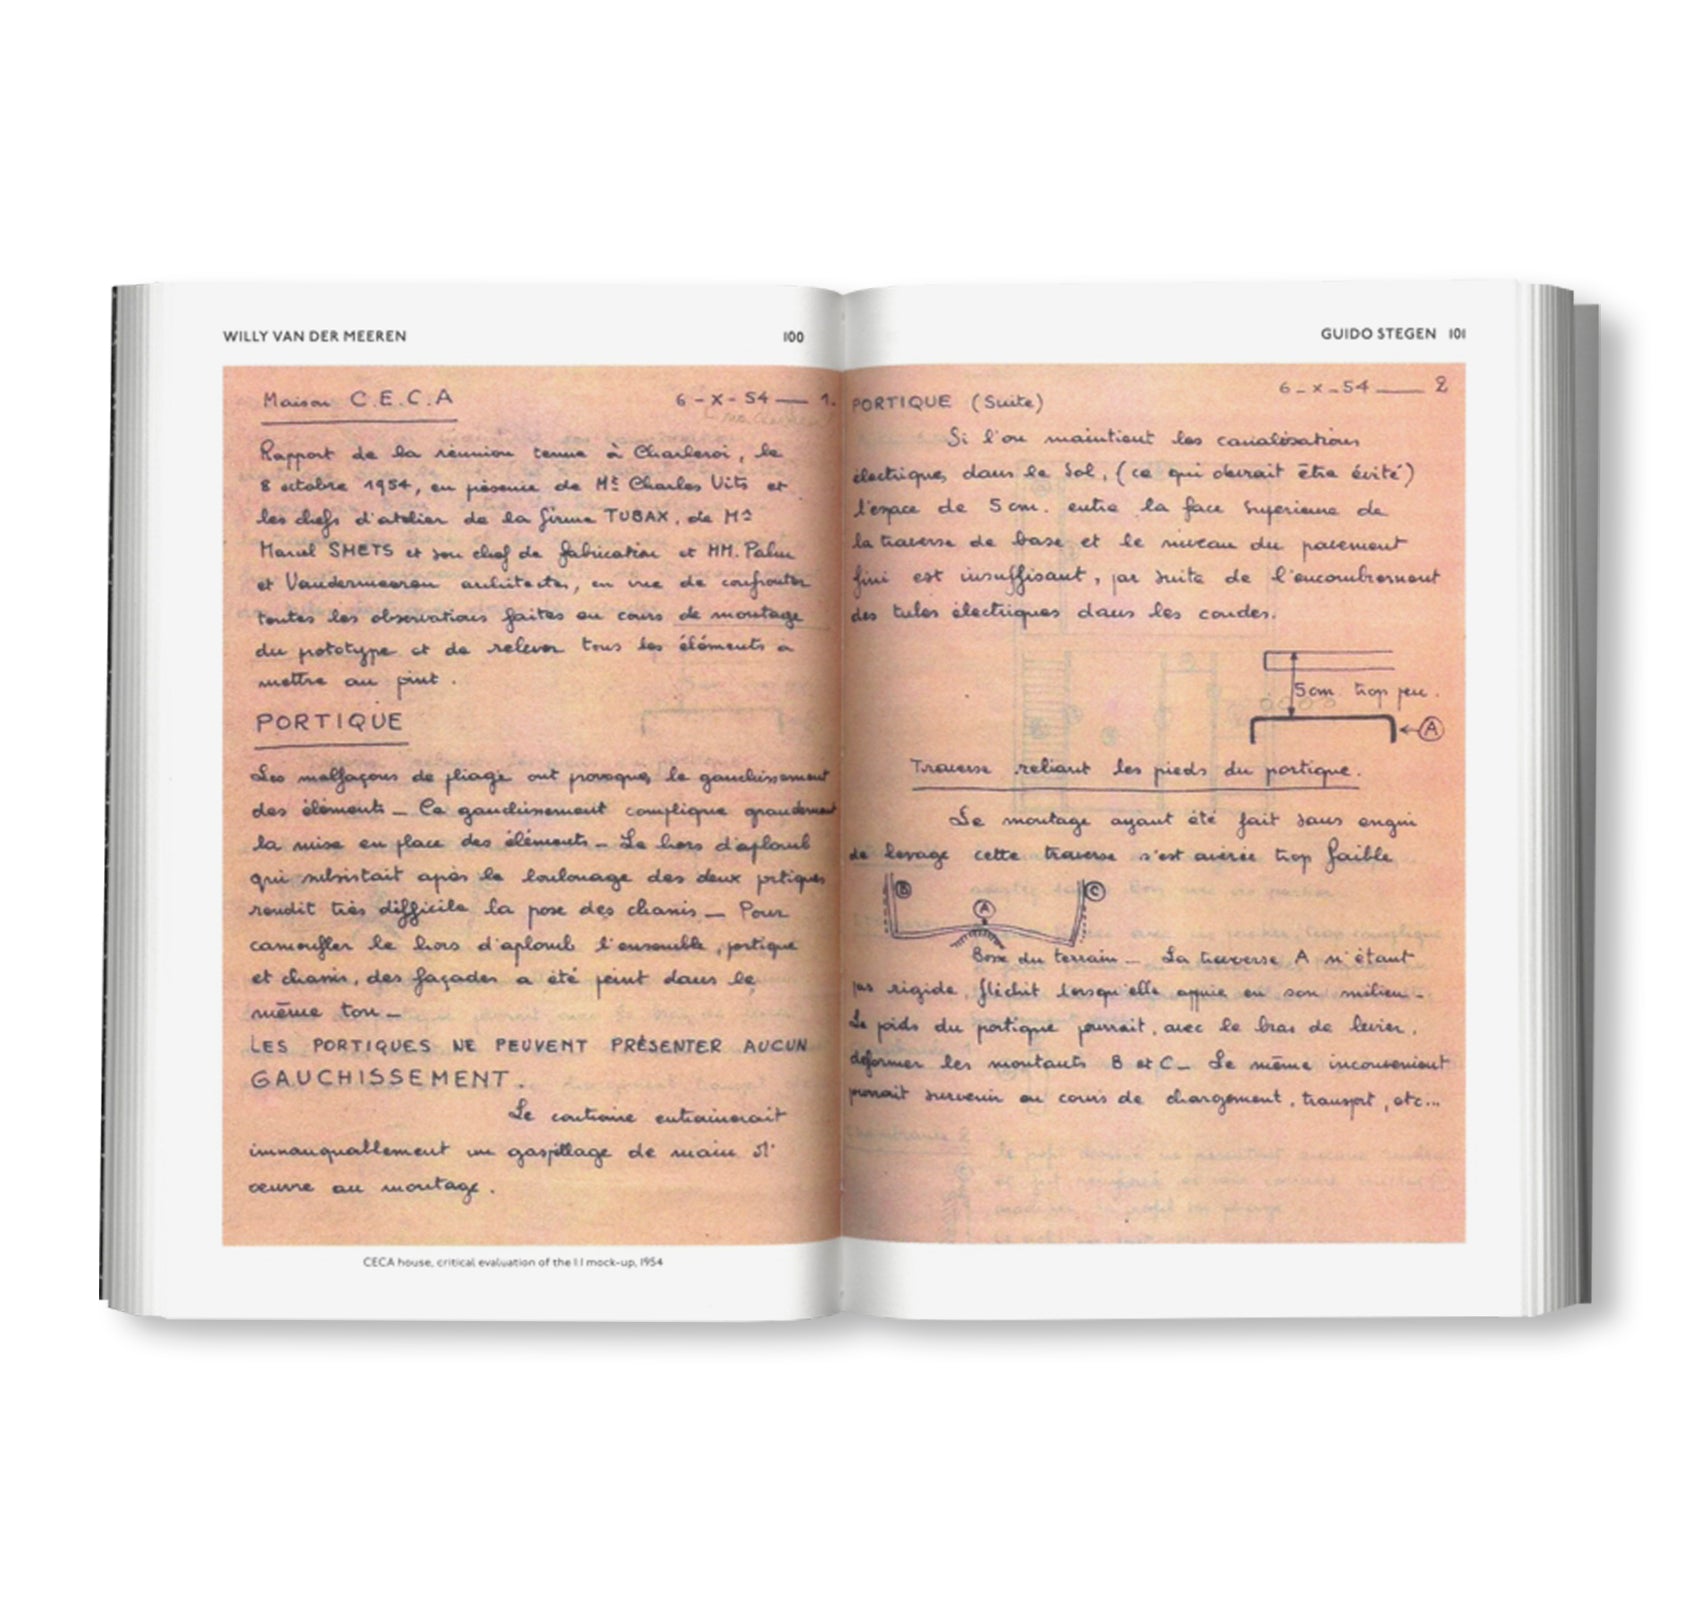 WILLY VAN DER MEEREN
100
Maison C.E.C.A
6 - X - 54 — 1.
Rapport de la réunion tenue à Charleroi, le
8 octobre 1954, en présence de Mr Charles Vits et
les chefs d'atelier de la firme TUBAX, de Mr
Marcel SMETS et son chef de fabrication et MM. Palm
et Vandermeeren architectes, en vue de confronter
toutes les observations faites au cours de montage
du prototype et de relever tous les éléments a
mettre au point.
PORTIQUE
Les malfaçons de pliage ont provoqué le gauchissement
des éléments - Ce gauchissement complique grandement
la mise en place des éléments - Le hors d'aplomb
qui subsistait après le boulonage des deux portiques
rendit très difficile la pose des chassis - Pour
camoufler le hors d'aplomb l'ensemble, portique
et chassis, des façades a été peint dans le
même ton -
LES PORTIQUES NE PEUVENT PRÉSENTER AUCUN
GAUCHISSEMENT.
Le contraire entrainerait
immanquablement un gaspillage de main d'
œuvre au montage.
CECA house, critical evaluation of the 1:1 mock-up, 1954
GUIDO STEGEN 101
6 - X - 54 — 2
PORTIQUE (Suite)
Si l'on maintient les canalisations
électriques dans le Sol, (ce qui devrait être évité)
l'espace de 5 cm. entre la face supérieure de
la traverse de base et le niveau du pavement
fini est insuffisant, par suite de l'encombrement
des tubes électriques dans les coudes.
5cm trop peu.
A
Traverse reliant les pieds du portique.
Le montage ayant été fait sans engin
de levage cette traverse s'est avérée trop faible
B
A
C
Bosse du terrain - La traverse A n'étant
pas rigide, fléchit lorsqu'elle appuie en son milieu -
Le poids du portique pourrait, avec le bras de levier,
déformer les montants B et C - Le même inconvenient
pourrait survenir au cours de chargement, transport, etc...